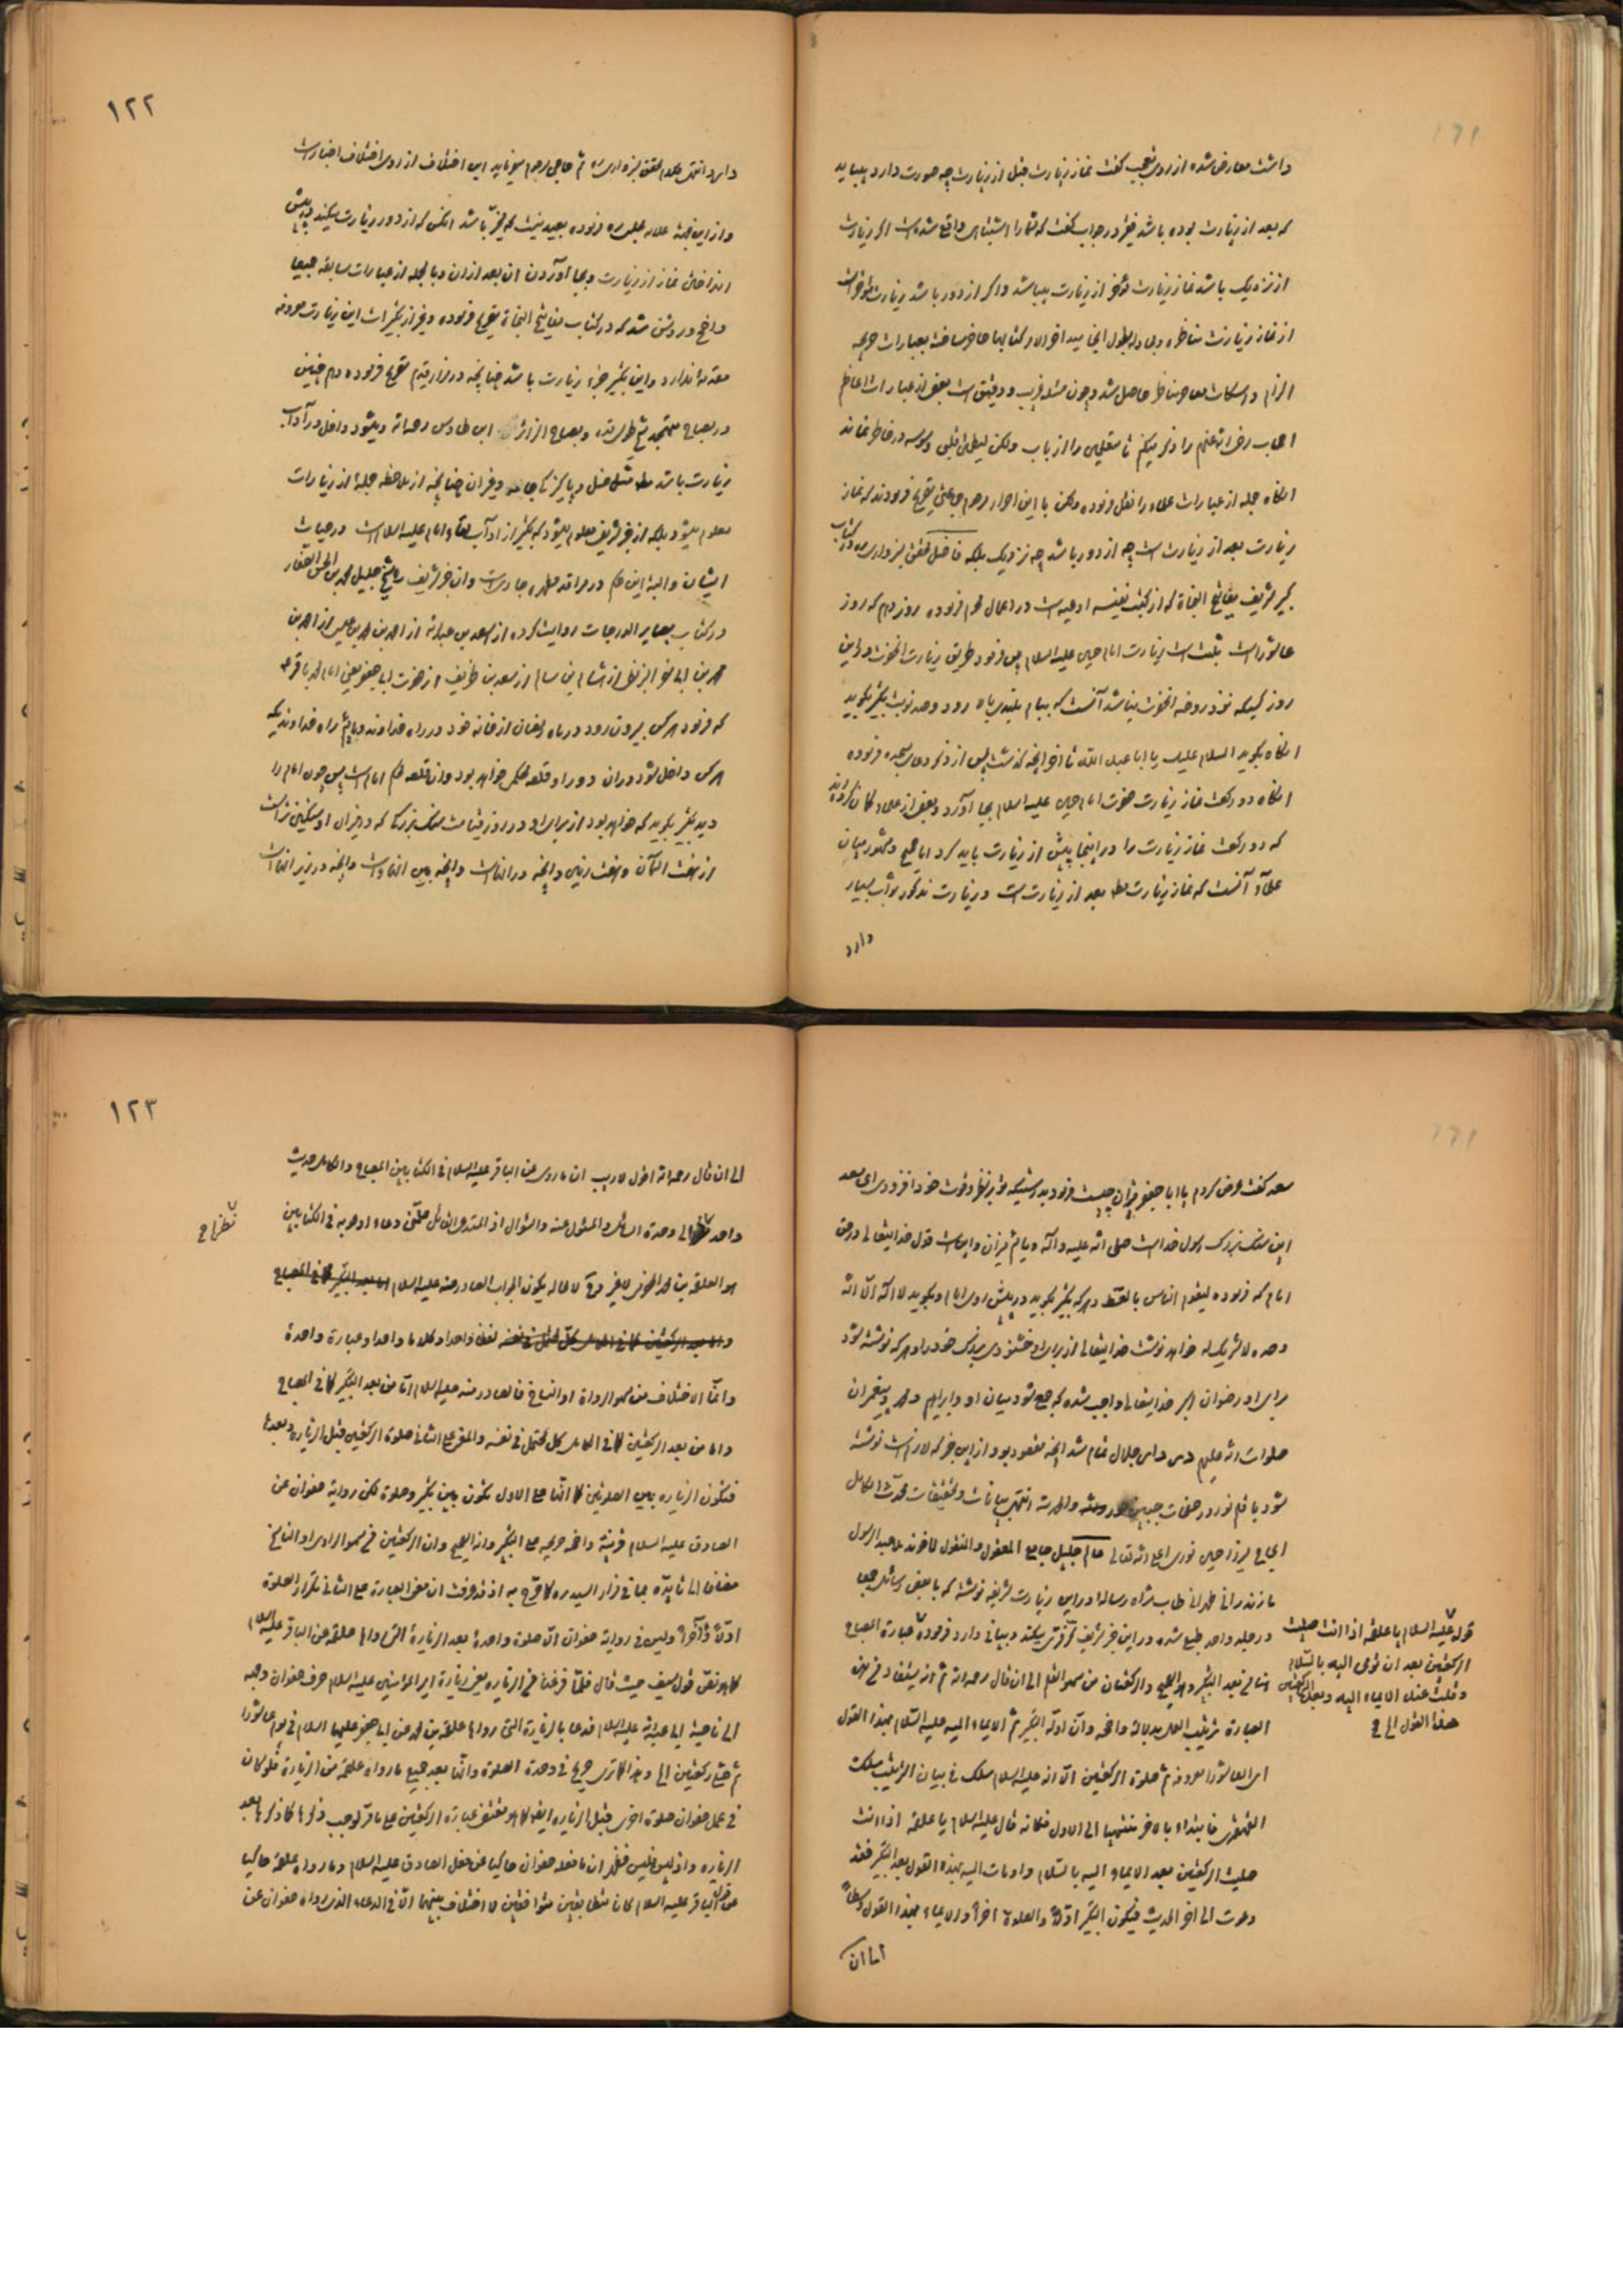 داشت معارض شده از روی تعجب گفت نماز زیارت قبل از زیارت چه صورت دارد بباید
که بعد از زیارت بوده باشد فقیر در جواب گفت که شما را اشتباهی واقع شده است اگر زیارت
از نزدیک باشد نماز زیارت مؤخر از زیارت میباشد و اگر از دور باشد زیارت مؤخر است
از نماز زیارت مناظره و مجادله بطول انجامید اخر الامر کتابها حاضر ساخته بعبارات صریحه
الزام و اسکات معاصر مناظر حاصل شد و چون مسئله غریب و دقیق است بعض از عبارات اعاظم
اصحاب رضی الله عنهم را ذکر میکنم تا متعلمین را از باب ولکن لیطمئن قلبی وسوسه در خاطر نماند
انگاه جمله از عبارات علماء را نقل فرموده ولکن با این اصرار مرحوم جماعتی تصریح فرمودند که نماز
زیارت بعد از زیارت است چه از دور باشد چه نزدیک بلکه فاضل محقق سبزواری ره در کتاب
کبیر شریف مفاتیح النجاة که از کتب نفیسه ادعیه است در اعمال محرم فرموده روز دهم که روز
عاشوراست سنت است زیارت امام حسین علیه السلام پس فرمود طریق زیارت انحضرت در این
روز کسیکه نزد روضه انحضرت نباشد آنست که ببام بلندی بالا رود و صد نوبت تکبیر بگوید
انگاه بگوید السلام علیک یا ابا عبد الله تا اخر انچه گذشت پس از ذکر دعای سجده فرموده
انگاه دو رکعت نماز زیارت حضرت امام حسین علیه السلام بجا آورد و بعض از علماء گمان کرده‌اند
که دو رکعت نماز زیارت را در اینجا پیش از زیارت باید کرد اما صحیح و مشهور میان
علماء آنست که نماز زیارت بعد از زیارت است و زیارت مذکور ثواب بسیار
دارد
١٢٢
دارد انتهی کلام محقق سبزواری ره ثم حاجی مرحوم میفرماید این اختلاف از روی اختلاف اخبار است
و از این جهة علامه مجلسی ره فرموده بعید نیست که مخیر باشد انکس که از دور زیارت میکند در پیش
انداختن نماز از زیارت و بجا آوردن ان بعد از ان و بالجمله از عبارات سابقه جمیعا
واضح و روشن شد که در کتاب مفاتیح النجاة تصریح فرموده و غیر از تکبیرات این زیارت معروفه
مقدمه ندارد و این تکبیر جزء زیارت باشد چنانچه در مزار قدیم تصریح فرموده و هم چنین
در مصباح متهجد شیخ طوسی قده و مصباح الزائر ابن طاوس رحمه الله و میشود داخل در آداب
زیارت باشد مثل غسل و پاکیزگی جامه و غیر ان چنانچه از ملاحظه جمله از زیارات
معلوم میشود بلکه از خبر شریف معلوم میشود که تکبیر از آداب لقاء امام علیه السلام است در حیات
ایشان و البته این حکم در مراقد مطهره جاریست و ان خبر شریف را شیخ جلیل محمد بن الحسن الصفار
در کتاب بصایر الدرجات روایت کرده از سعد بن عبد الله از احمد بن محمد بن عیسی از احمد بن
محمد بن ابی نصر البزنطی از هشام بن سالم از سعد بن طریف از حضرت ابی جعفر یعنی امام محمد باقر ع
که فرمود هر کس بیرون رود در ماه رمضان از خانه خود در راه خداوند و میانیم راه خداوندیکه
هر کس داخل شود در ان دور او قلعه محکم خواهد بود و ان قلعه محکم امام است پس چون امام را
دید تکبیر بگوید که خواهد بود از برای او در روز قیامت سنگ بزرگی که در میزان او سنگین تر است
از هفت آسمان و هفت زمین و انچه در انهاست و انچه بین انهاست و انچه در زیر انهاست
سعد گفت عرض کردم یا ابا جعفر میزان چیست فرمود بدرستیکه تو بر نظر و قوت خود افزودی ای سعد
این سنگ بزرگ رسول خداست صلی الله علیه و آله و مائیم میزان و اینست قول خدایتعالی در حق
امام که فرموده لیقوم الناس بالقسط و هر که تکبیر بگوید در پیش روی امام و بگوید لا اله الا الله
وحده لا شریک له خواهد نوشت خدایتعالی از برای او خشنودی بزرگ خود را و هر که نوشته شود
برای او رضوان اکبر خدایتعالی واجب شده که جمع شود میان او و ابراهیم و محمد و پیغمبران
صلوات الله علیهم در دار جلال تمام شد انچه مقصود بود از این خبر که لازم است نوشته
شود با قلم نور در صفحات جبین حور والحمد لله انتهی بیانات و تحقیقات محدث الکامل
الحاج میرزا حسین نوری اعلی الله تعالی عالم جلیل جامع المعقول و المنقول اخوند ملا عبد الرسول
مازندرانی طهرانی طاب ثراه رساله در این زیارت شریفه نوشته که با بعض رسائل جمعا
در جلد واحد طبع شده و در این خبر شریف ترقی میکند و بیانی دارد فرموده عبارة المصباح
هنا من بعد التکبیر و هو الصحیح و الرکعتان من سهو القلم الی ان قال رحمه الله ثم انه یستفاد من هذه
العبارة ترتیب العمل بدلالة واضحه و ان اوله التکبیر ثم الایماء الیه علیه السلام بهذا القول
ای العاشورا المعروفه ثم صلوة الرکعتین الا انه علیه السلام سلک فی بیان الترتیب مسلک
القهقری فابتداء بالاخر منتهیا الی الاول فکانه قال علیه السلام یا علقمة اذا انت
صلیت الرکعتین بعد الایماء الیه بالسلام و اومات الیه بهذا القول بعد التکبیر فقد
دعوت الی اخر الحدیث فیکون التکبیر اولا و الصلوة اخرا و الایماء بهذا القول وسطا
اما ان
قوله علیه السلام یا علقمة اذا انت صلیت
الرکعتین بعد ان تومی الیه بالسلام
و قلت عند الایماء الیه و بعد الرکعتین
هذا القول الخ
١٢٣
الی ان قال رحمه الله اقول لا ریب ان ما روی عن الباقر علیه السلام فی الکتابین المصباح و الکامل حدیث
واحد نظرا الی وحدة السائل و المسئول عنه و السؤال اذ المستدعی السائل من تلقین دعاء ادعو به فی الکتابین
نظرا ح
هو العلقمة بن محمد الحضرمی لا غیر فلا محاله یکون الجواب الصادر منه علیه السلام
لفظا واحدا و کلاما واحدا و عبارة واحدة
و انما الاختلاف من سهو الرواة او النساخ فالصادر منه علیه السلام اما من بعد التکبیر کما فی المصباح
و اما من بعد الرکعتین کما فی الکامل کل محتمل فی نفسه و المتفرع علی الثانی صلوة الرکعتین قبل الزیاره و بعدها
فتکون الزیاره بین الصلوتین کما انها علی الاول تکون بین تکبیر و صلوة لکن روایة صفوان عن
الصادق علیه السلام قرینة واضحه صریحه علی التکبیر و انه الصحیح و ان الرکعتین من سهو الراوی او الناسخ
مضافا الی تایده بما فی مزار السید ره کما صرح به اذ قد عرفت ان مقتضی العبارة علی الثانی تکرار الصلوة
اولا و آخرا و لیس فی روایة صفوان الا صلوة واحدة بعد الزیارة التی رواها علقمة عن الباقر علیه السلام
کما هو نص قول سیف حیث قال فلما فرغنا من الزیاره یعنی زیارة امیر المؤمنین علیه السلام صرف صفوان وجهه
الی ناحیة ابی عبد الله علیه السلام فدعا بالزیارة التی رواها علقمة بن محمد عن ابی جعفر علیهما السلام فی یوم عاشورا
ثم صلی رکعتین الخ و هذا کما تری صریح فی وحدة الصلوة و انها بعد جمیع ما رواه علقمة من الزیارة فلو کان
فی عمل صفوان صلوة اخری قبل الزیاره ایضا کما هو مقتضی عبارة الرکعتین علی ما مر لوجب ذکرها کما ذکرها بعد
الزیاره و اذ لیس فلیس فظهر ان ما فعله صفوان حاکیا عن فعل الصادق علیه السلام و ما رواه علقمة حاکیا
عن قول الباقر علیه السلام کانا متطابقین متوافقین لا اختلاف بینهما الا فی الدعاء الذی رواه صفوان عن